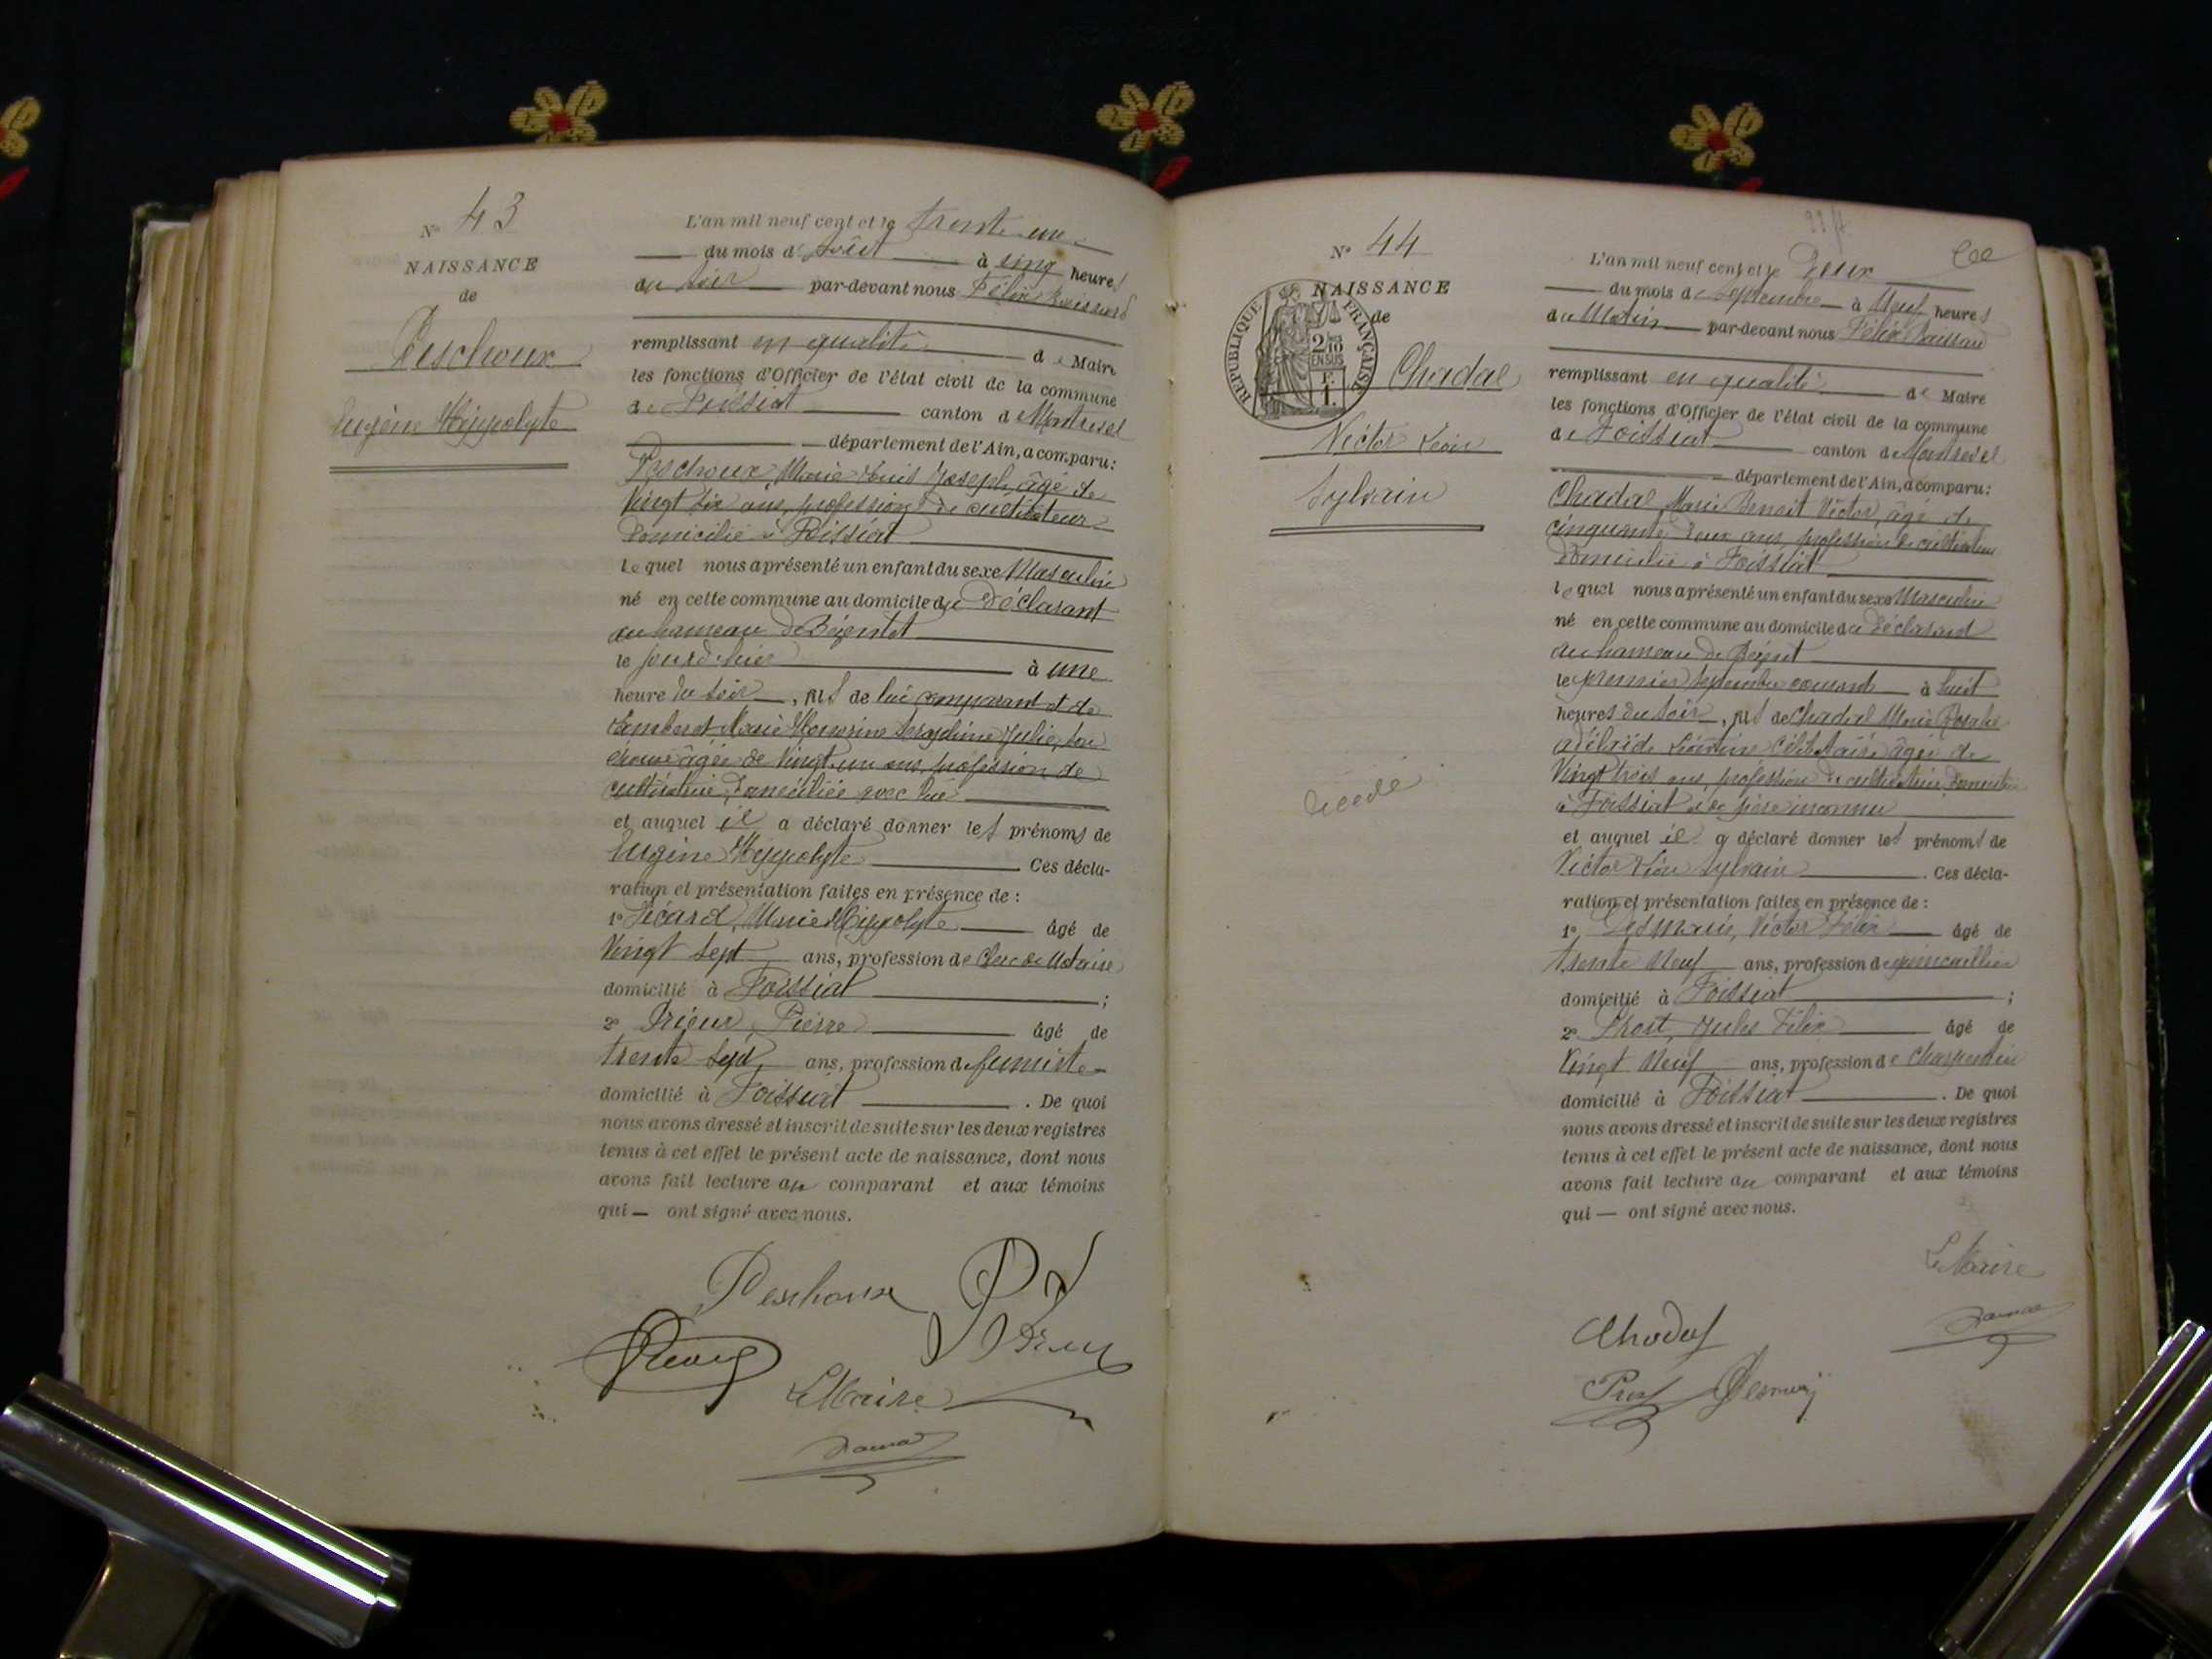 N° 43
NAISSANCE
de
Deschoux
Eugène Hippolyte
L'an mil neuf cent et le trente un
du mois d'Août à cinq heures
du soir par-devant nous Félix
remplissant en qualité de Maire
les fonctions d'Officier de l'état civil de la commune
de Foissiat canton de Montrevel
département de l'Ain, a comparu:
Deschoux, Marie Louis Joseph, âgé de
Vingt six ans, profession de cultivateur
domicilié à Foissiat
lequel nous a présenté un enfant du sexe Masculin
né en cette commune au domicile du déclarant
au hameau de
le jour d'hier à une
heure du soir, fils de lui comparant et de
Marie Julie, son
épouse âgée de Vingt un ans, profession de
cultivatrice, domiciliée avec lui
et auquel il a déclaré donner les prénoms de
Eugène Hyppolyte Ces décla-
ration et présentation faites en présence de :
1° Marie Hippolyte âgé de
Vingt sept ans, profession de Clerc de Notaire
domicilié à Foissiat ;
2° Prieur, Pierre âgé de
trente sept ans, profession de fumiste
domicilié à Foissiat . De quoi
nous avons dressé et inscrit de suite sur les deux registres
tenus à cet effet le présent acte de naissance, dont nous
avons fait lecture au comparant et aux témoins
qui — ont signé avec nous.
Deschoux
Le Maire
N° 44
NAISSANCE
de
REPUBLIQUE FRANÇAISE
2/10
EN SUS
F.
1.
Chadal
Victor Léon
Sylvain
décédé
L'an mil neuf cent et le Deux
du mois de Septembre à Neuf heures
du Matin par-devant nous Félix
remplissant en qualité de Maire
les fonctions d'Officier de l'état civil de la commune
de Foissiat canton de Montrevel
département de l'Ain, a comparu:
Chadal, Marie Benoit Victor, âgé de
cinquante deux ans, profession de cultivateur
domicilié à Foissiat
lequel nous a présenté un enfant du sexe Masculin
né en cette commune au domicile du déclarant
au hameau de
le premier Septembre courant à huit
heures du soir, fils de Chadal Marie Rosalie
Adélaïde célibataire âgée de
Vingt trois ans, profession de cultivatrice, domiciliée
à Foissiat et de père inconnu
et auquel il a déclaré donner les prénoms de
Victor Léon Sylvain . Ces décla-
ration et présentation faites en présence de :
1° Desmaris, Victor Félix âgé de
trente Neuf ans, profession de quincaillier
domicilié à Foissiat ;
2° Prost, Jules Félix âgé de
Vingt Neuf ans, profession de Charpentier
domicilié à Foissiat . De quoi
nous avons dressé et inscrit de suite sur les deux registres
tenus à cet effet le présent acte de naissance, dont nous
avons fait lecture au comparant et aux témoins
qui — ont signé avec nous.
Le Maire
Chadal
Prost